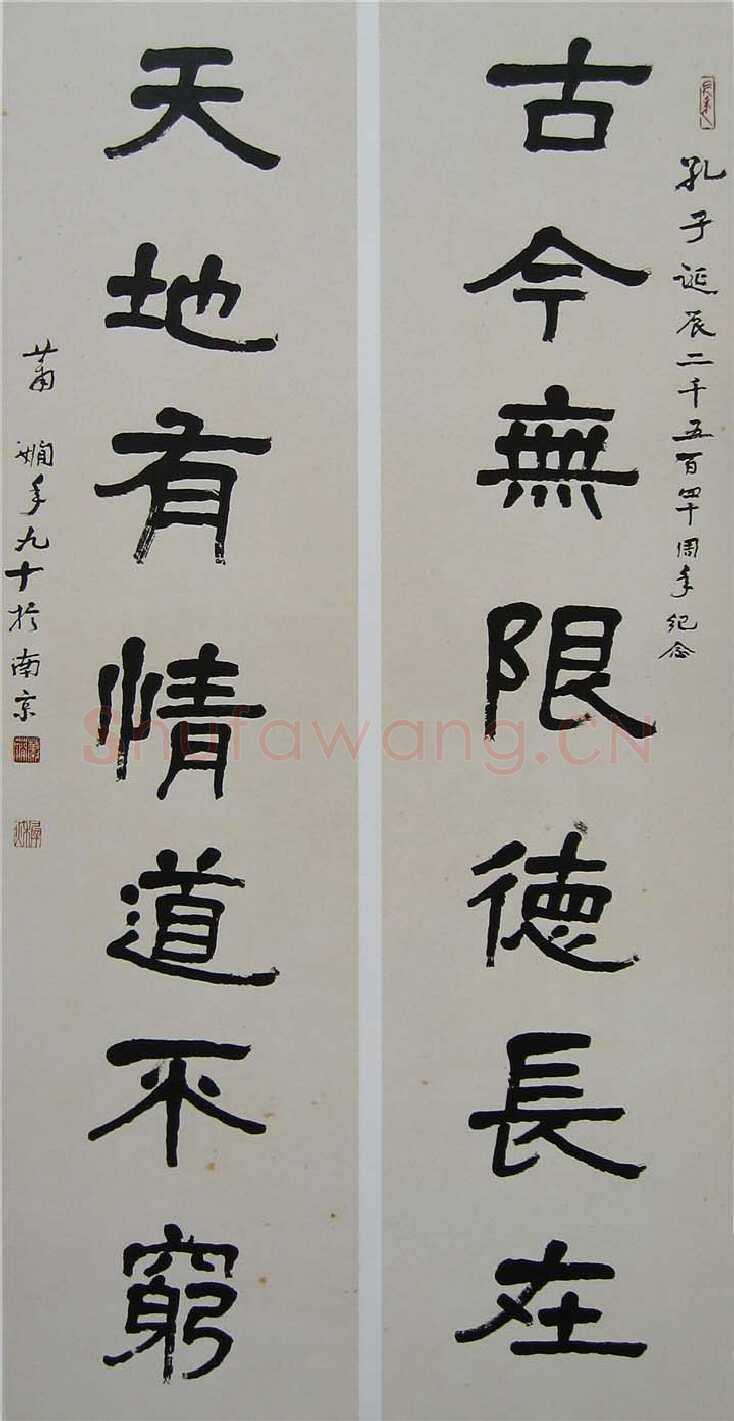 孔子诞辰二千五百四十周年纪念
古今無限德長在
天地有情道不窮
萧娴年九十於南京
Shufawang.CN